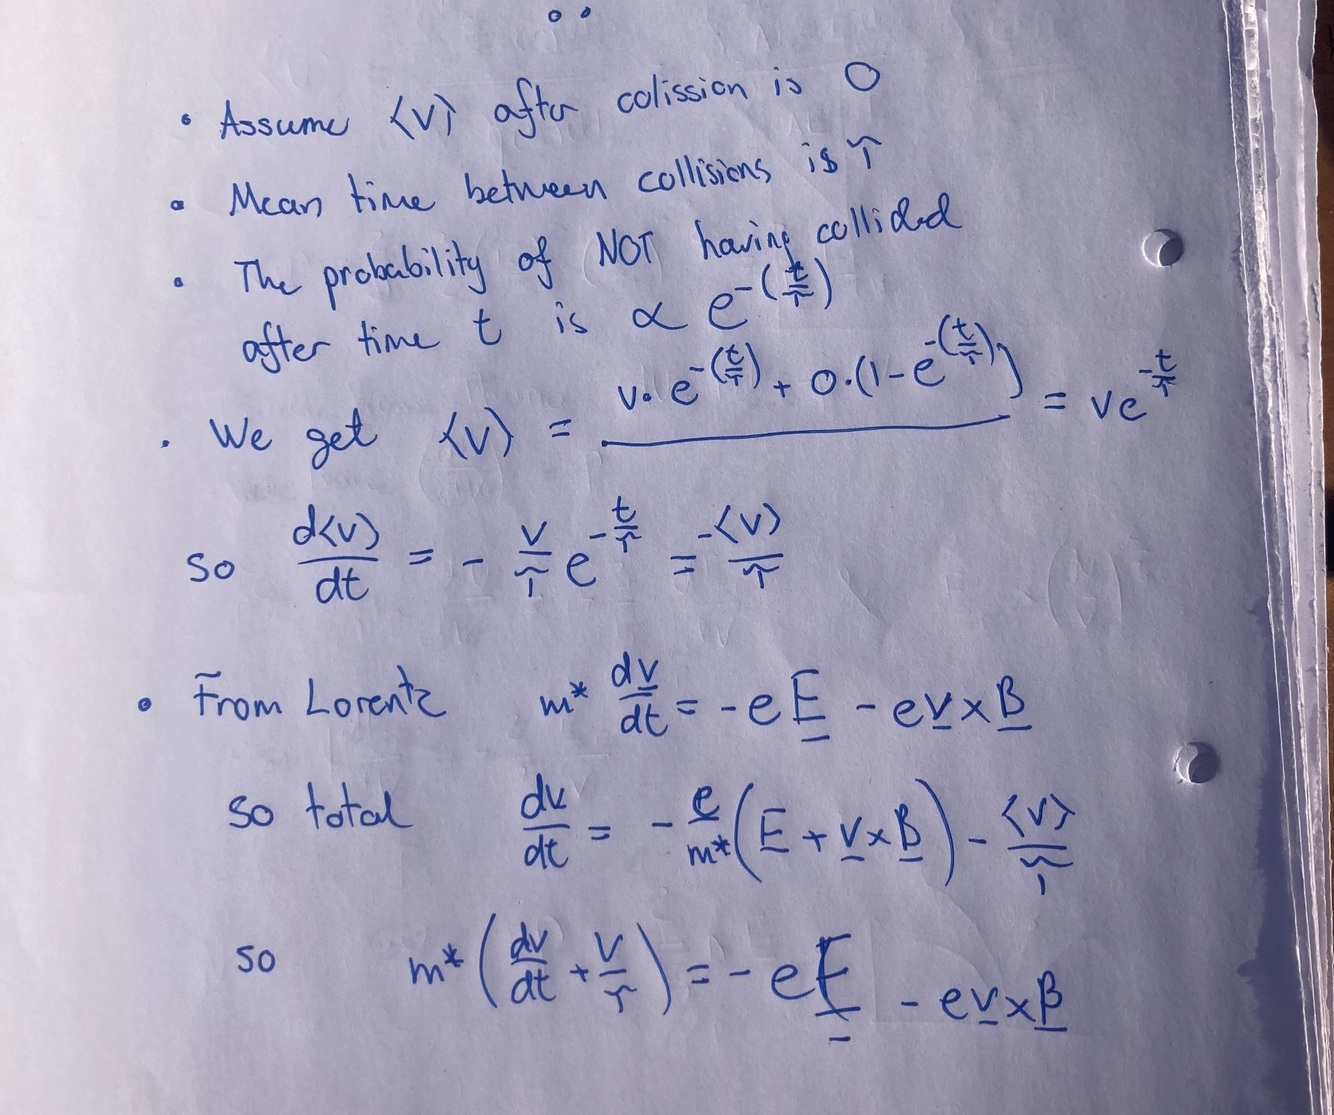 • Assume ⟨v⟩ after colission is 0
• Mean time between collisions is τ
• The probability of NOT having collided
after time t is ∝ e^-(t/τ)
• We get ⟨v⟩ = v·e^-(t/τ) + 0·(1-e^-(t/τ)) = ve^-t/τ
so d⟨v⟩/dt = - v/τ e^-t/τ = -⟨v⟩/τ
• From Lorentz m* dv/dt = -eE - ev×B
so total dv/dt = - e/m* (E + v×B) - ⟨v⟩/τ
so m* (dv/dt + v/τ) = -eE - ev×B